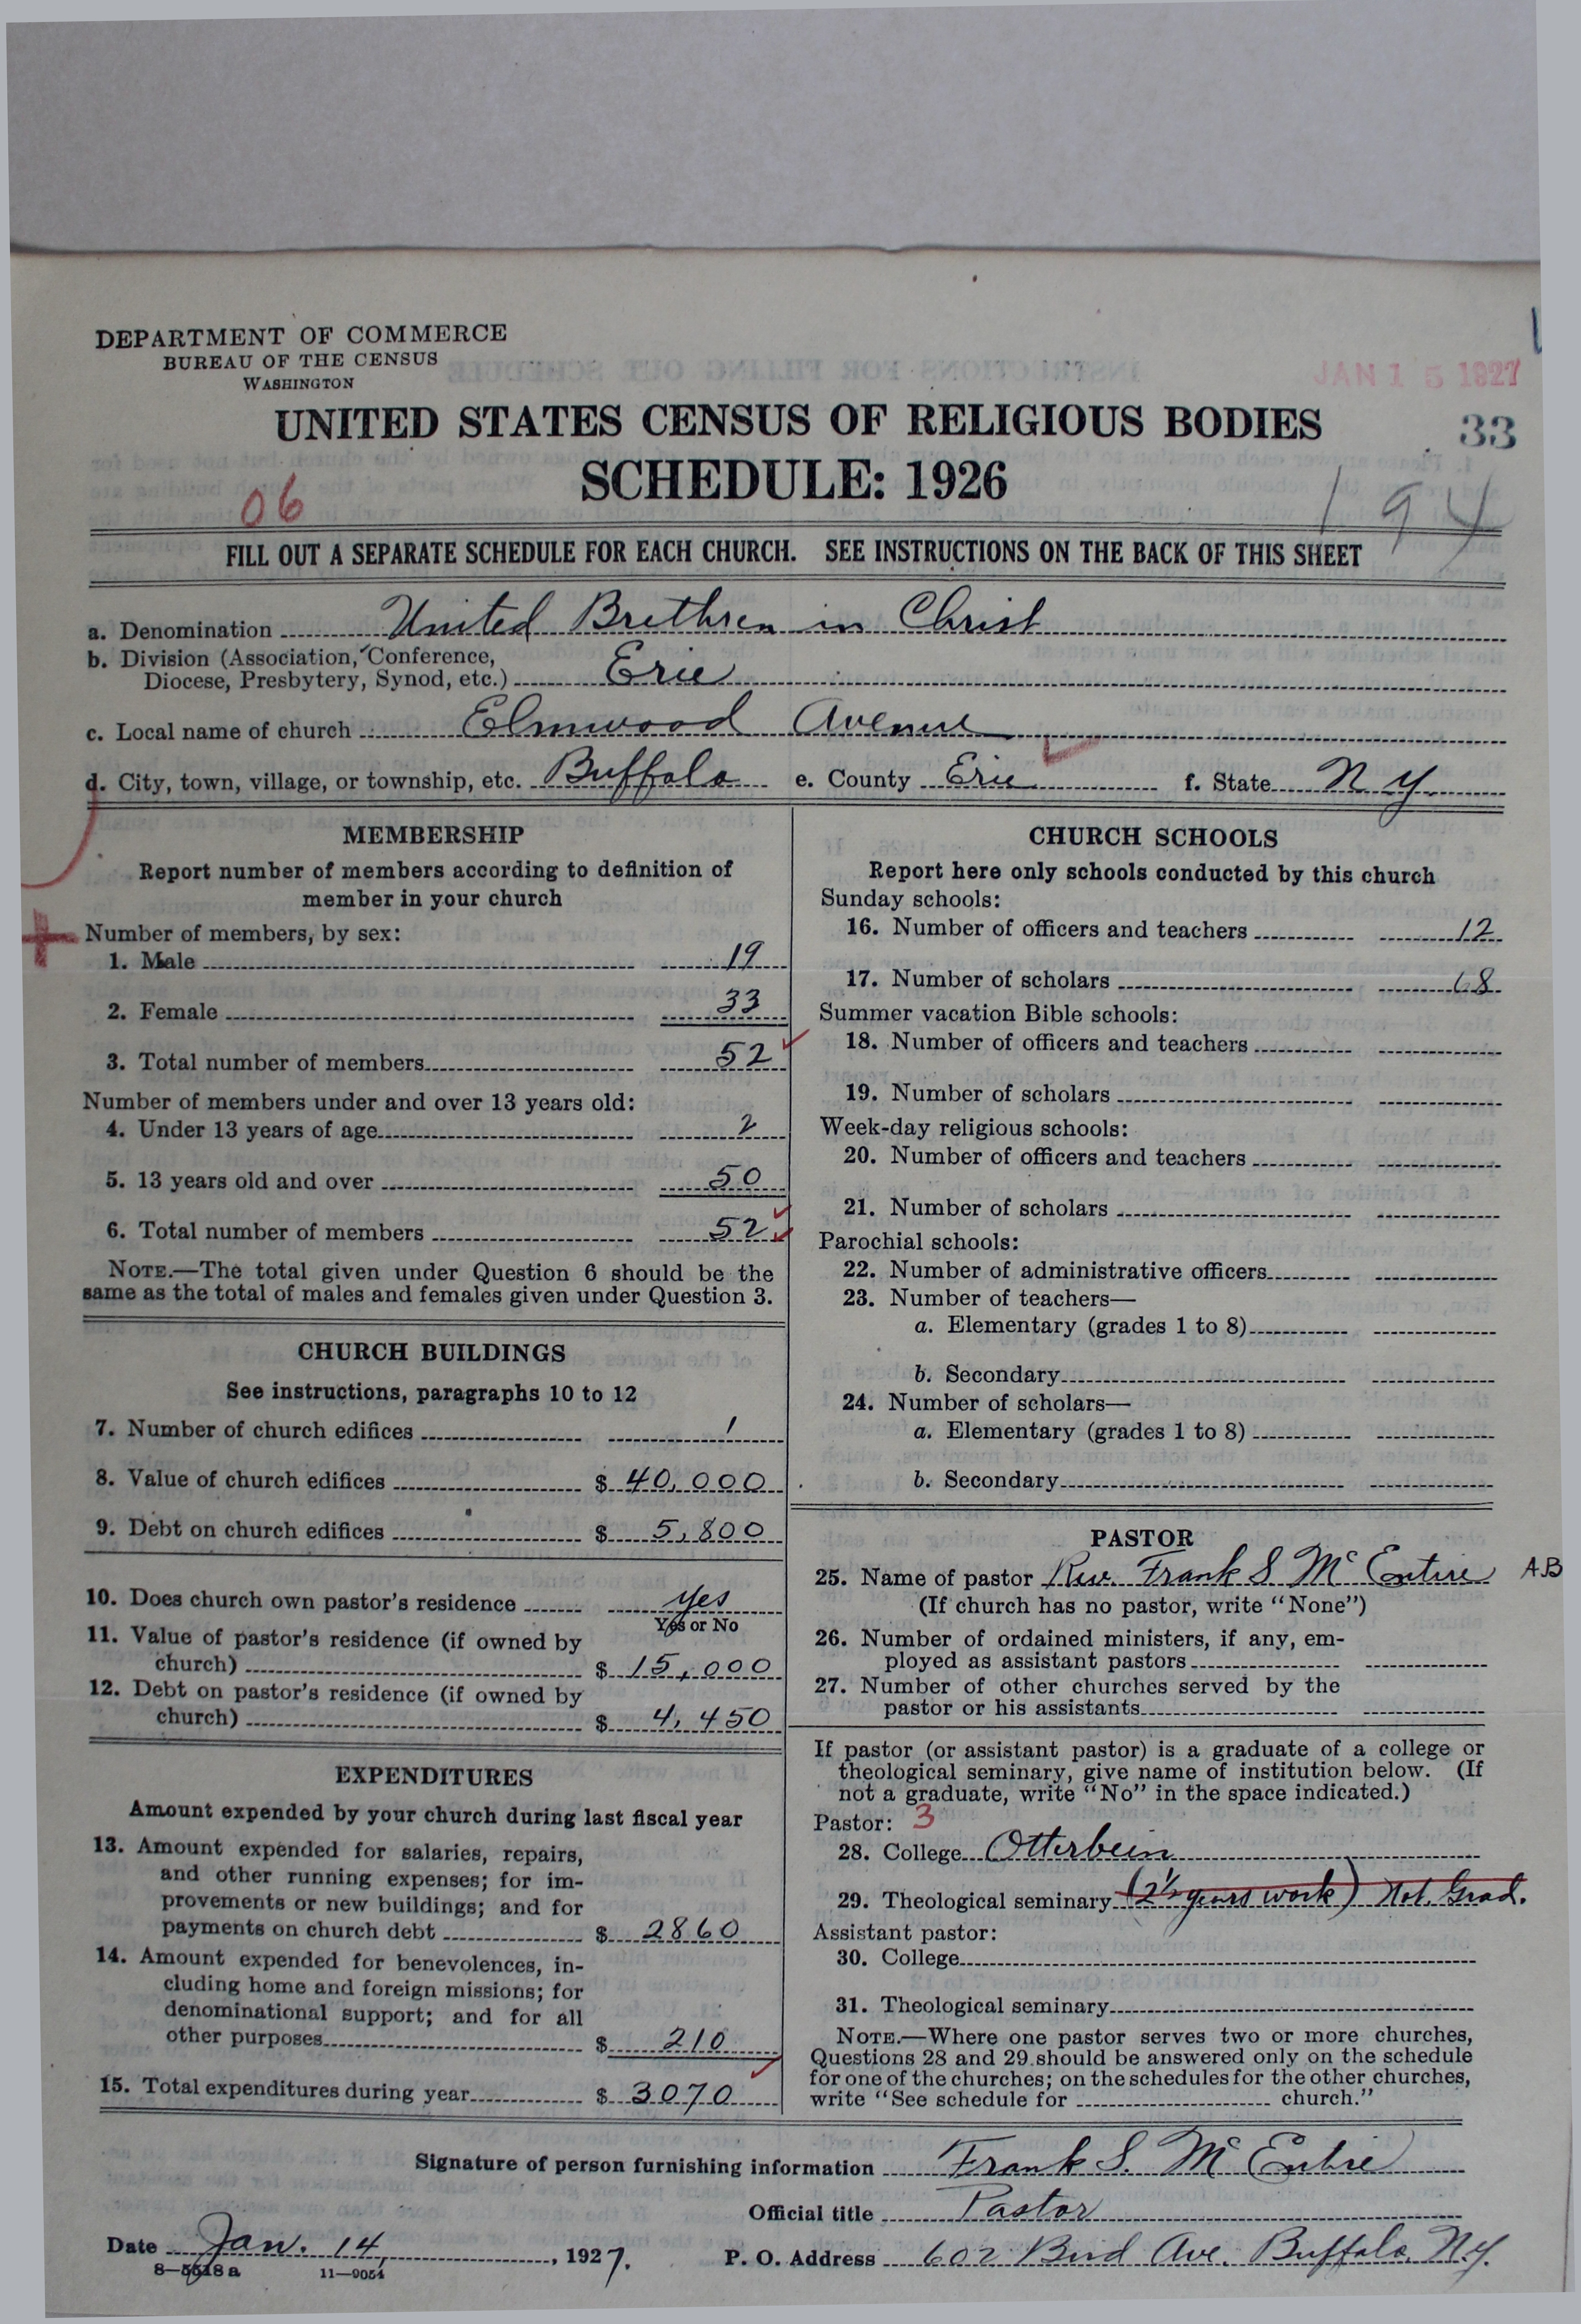 DEPARTMENT OF COMMERCE
BUREAU OF THE CENSUS
WASHINGTON
JAN 15 1927
UNITED STATES CENSUS OF RELIGIOUS BODIES
33
SCHEDULE: 1926
06
194
FILL OUT A SEPARATE SCHEDULE FOR EACH CHURCH. SEE INSTRUCTIONS ON THE BACK OF THIS SHEET
a. Denomination United Brethren in Christ
b. Division (Association, Conference,
Diocese, Presbytery, Synod, etc.) Erie
c. Local name of church Elmwood Avenue
d. City, town, village, or township, etc. Buffalo e. County Erie f. State N Y
MEMBERSHIP
Report number of members according to definition of
member in your church
Number of members, by sex:
1. Male 19
2. Female 33
3. Total number of members 52
Number of members under and over 13 years old:
4. Under 13 years of age 2
5. 13 years old and over 50
6. Total number of members 52
NOTE.—The total given under Question 6 should be the
same as the total of males and females given under Question 3.
CHURCH BUILDINGS
See instructions, paragraphs 10 to 12
7. Number of church edifices 1
8. Value of church edifices $ 40,000
9. Debt on church edifices $ 5,800
10. Does church own pastor's residence yes
Yes or No
11. Value of pastor's residence (if owned by
church) $ 15,000
12. Debt on pastor's residence (if owned by
church) $ 4,450
EXPENDITURES
Amount expended by your church during last fiscal year
13. Amount expended for salaries, repairs,
and other running expenses; for im-
provements or new buildings; and for
payments on church debt $ 2860
14. Amount expended for benevolences, in-
cluding home and foreign missions; for
denominational support; and for all
other purposes $ 210
15. Total expenditures during year $ 3070
CHURCH SCHOOLS
Report here only schools conducted by this church
Sunday schools:
16. Number of officers and teachers 12
17. Number of scholars 68
Summer vacation Bible schools:
18. Number of officers and teachers
19. Number of scholars
Week-day religious schools:
20. Number of officers and teachers
21. Number of scholars
Parochial schools:
22. Number of administrative officers
23. Number of teachers—
a. Elementary (grades 1 to 8)
b. Secondary
24. Number of scholars—
a. Elementary (grades 1 to 8)
b. Secondary
PASTOR
25. Name of pastor Rev. Frank S. McEntire AB
(If church has no pastor, write "None")
26. Number of ordained ministers, if any, em-
ployed as assistant pastors
27. Number of other churches served by the
pastor or his assistants
If pastor (or assistant pastor) is a graduate of a college or
theological seminary, give name of institution below. (If
not a graduate, write "No" in the space indicated.)
Pastor: 3
28. College Otterbein
29. Theological seminary (2½ years work) Not Grad.
Assistant pastor:
30. College
31. Theological seminary
NOTE.—Where one pastor serves two or more churches,
Questions 28 and 29 should be answered only on the schedule
for one of the churches; on the schedules for the other churches,
write "See schedule for church."
Signature of person furnishing information Frank S. McEntire
Official title Pastor
Date Jan. 14, 1927. P. O. Address 602 Bird Ave. Buffalo, N.Y.
8—5518a 11—9054